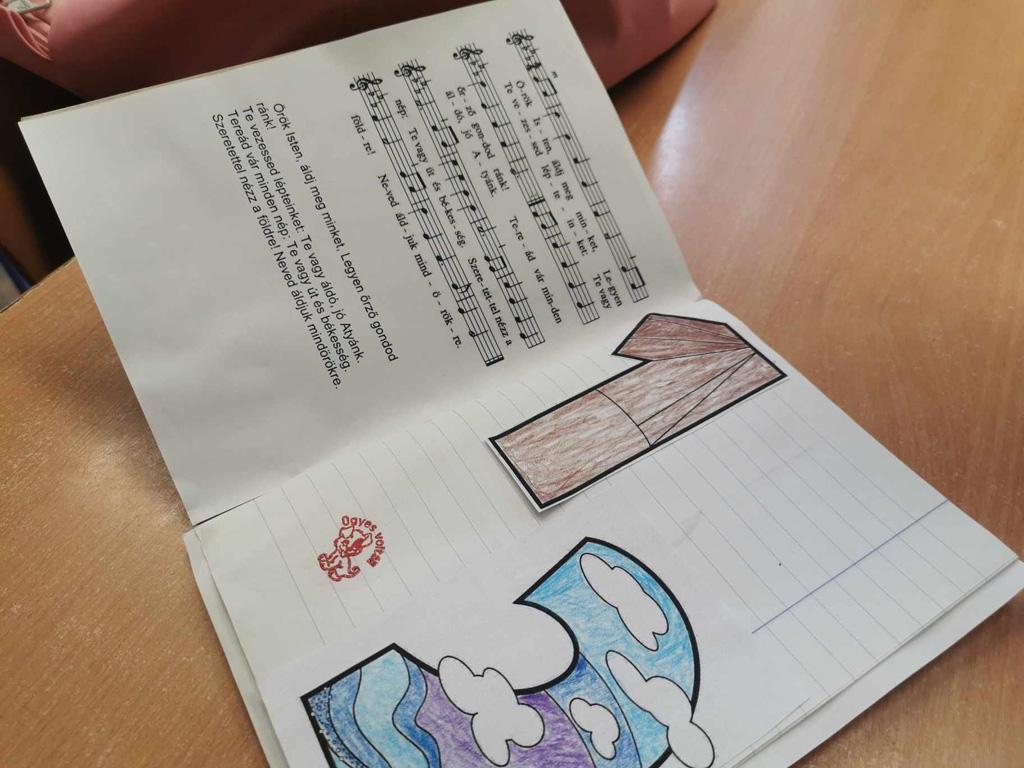 Ö-rök Is - ten, áldj meg min - ket, Le-gyen
Te ve - zes sed lép - te - in - ket: Te vagy
őr - ző gon-dod ránk! Te-re - ád vár min-den
ál - dó, jó A - tyánk.
nép: Te vagy út és bé-kes-ség. Sze-re-tet-tel nézz a
föld - re! Ne-ved áld - juk mind - ö - rök - re.
Örök Isten, áldj meg minket, Legyen őrző gondod
ránk!
Te vezessed lépteinket: Te vagy áldó, jó Atyánk.
Tereád vár minden nép: Te vagy út és békesség.
Szeretettel nézz a földre! Neved áldjuk mindörökre.
Ügyes voltál!